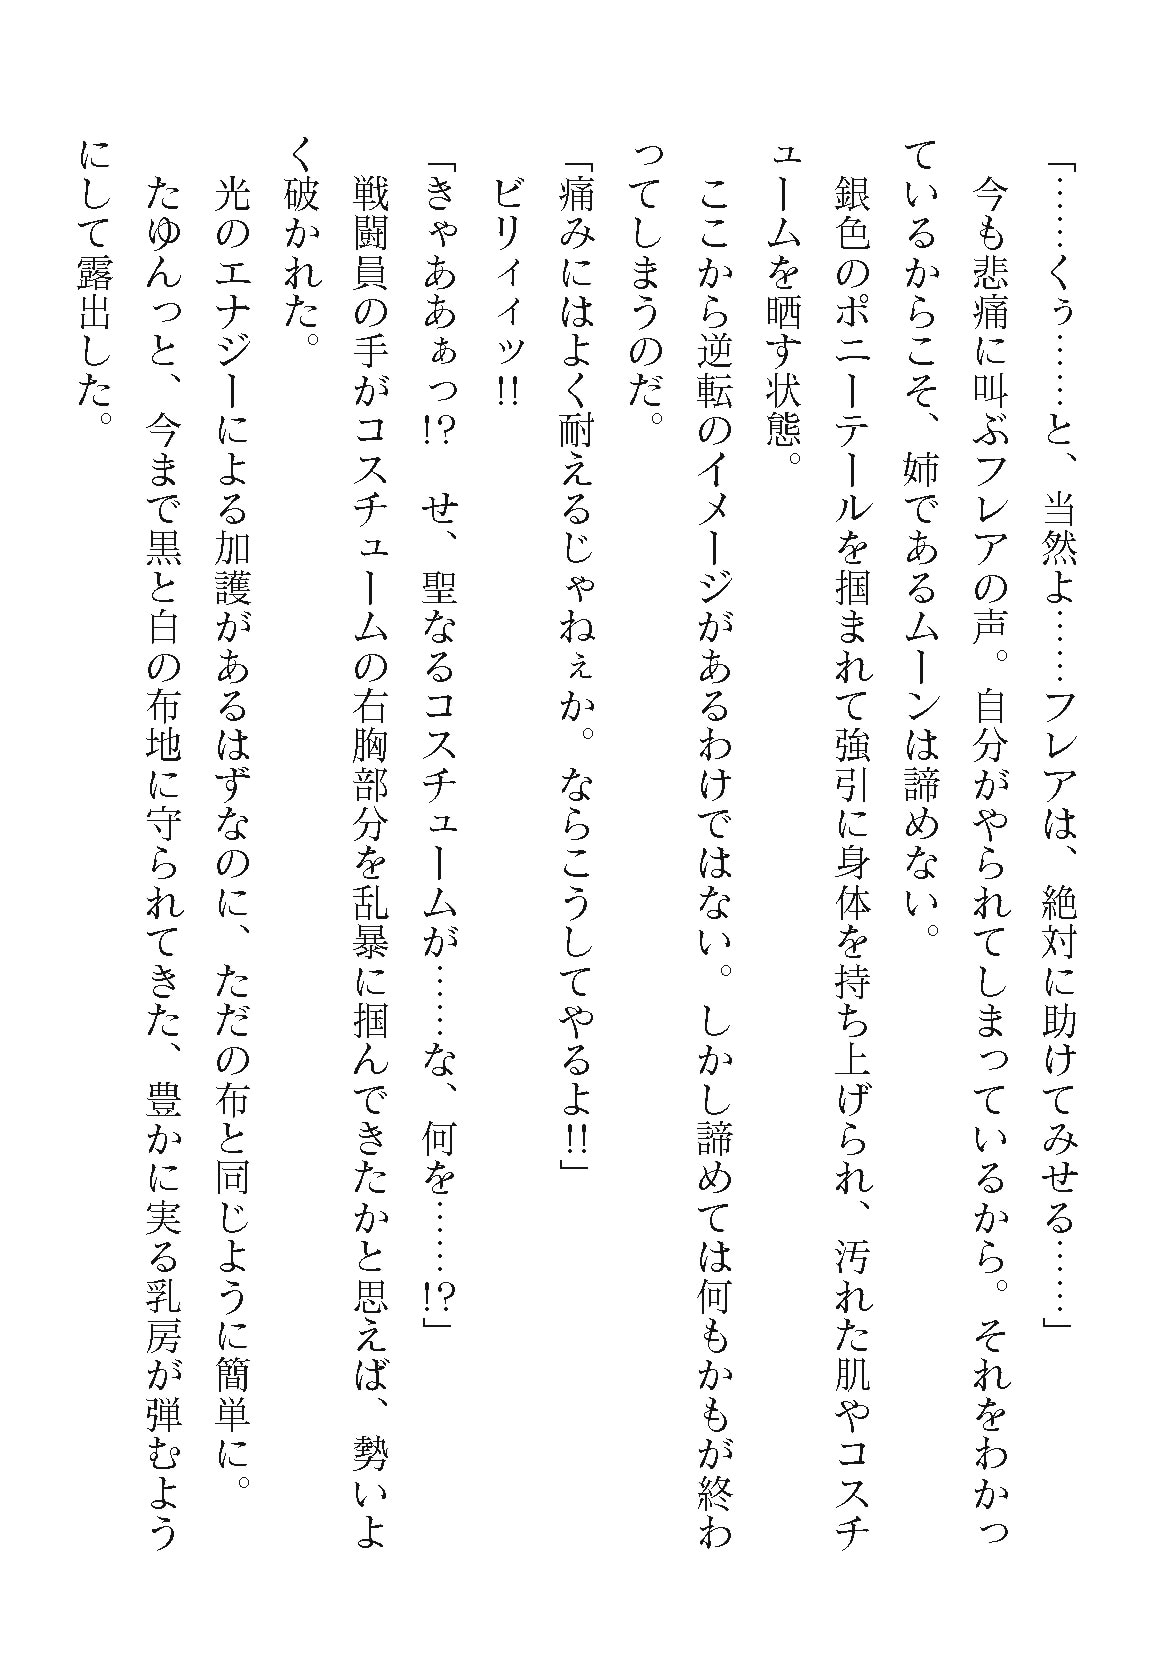 「……くぅ……と、当然よ……フレアは、絶対に助けてみせる……」
　今も悲痛に叫ぶフレアの声。自分がやられてしまっているから。それをわかっ
ているからこそ、姉であるムーンは諦めない。
　銀色のポニーテールを掴まれて強引に身体を持ち上げられ、汚れた肌やコスチ
ュームを晒す状態。
　ここから逆転のイメージがあるわけではない。しかし諦めては何もかもが終わ
ってしまうのだ。
「痛みにはよく耐えるじゃねぇか。ならこうしてやるよ!!」
　ビリィィッ!!
「きゃああぁっ!?　せ、聖なるコスチュームが……な、何を……!?」
　戦闘員の手がコスチュームの右胸部分を乱暴に掴んできたかと思えば、勢いよ
く破かれた。
　光のエナジーによる加護があるはずなのに、ただの布と同じように簡単に。
　たゆんっと、今まで黒と白の布地に守られてきた、豊かに実る乳房が弾むよう
にして露出した。